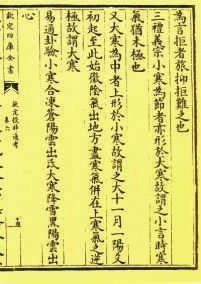 為言拒者旅抑拒難之也
三禮義宗小寒為節者亦形於大寒故謂之小言時寒
氣猶未極也
又大寒為中者上形於小寒故謂之大十一月一陽爻
初起至此始徹陰氣出地方盡寒氣併在上寒氣之逆
極故謂大寒
易通卦驗小寒合凍蒼陽雲出氐大寒降雪黑陽雲出
心
欽定四庫全書
欽定授時通考
卷六